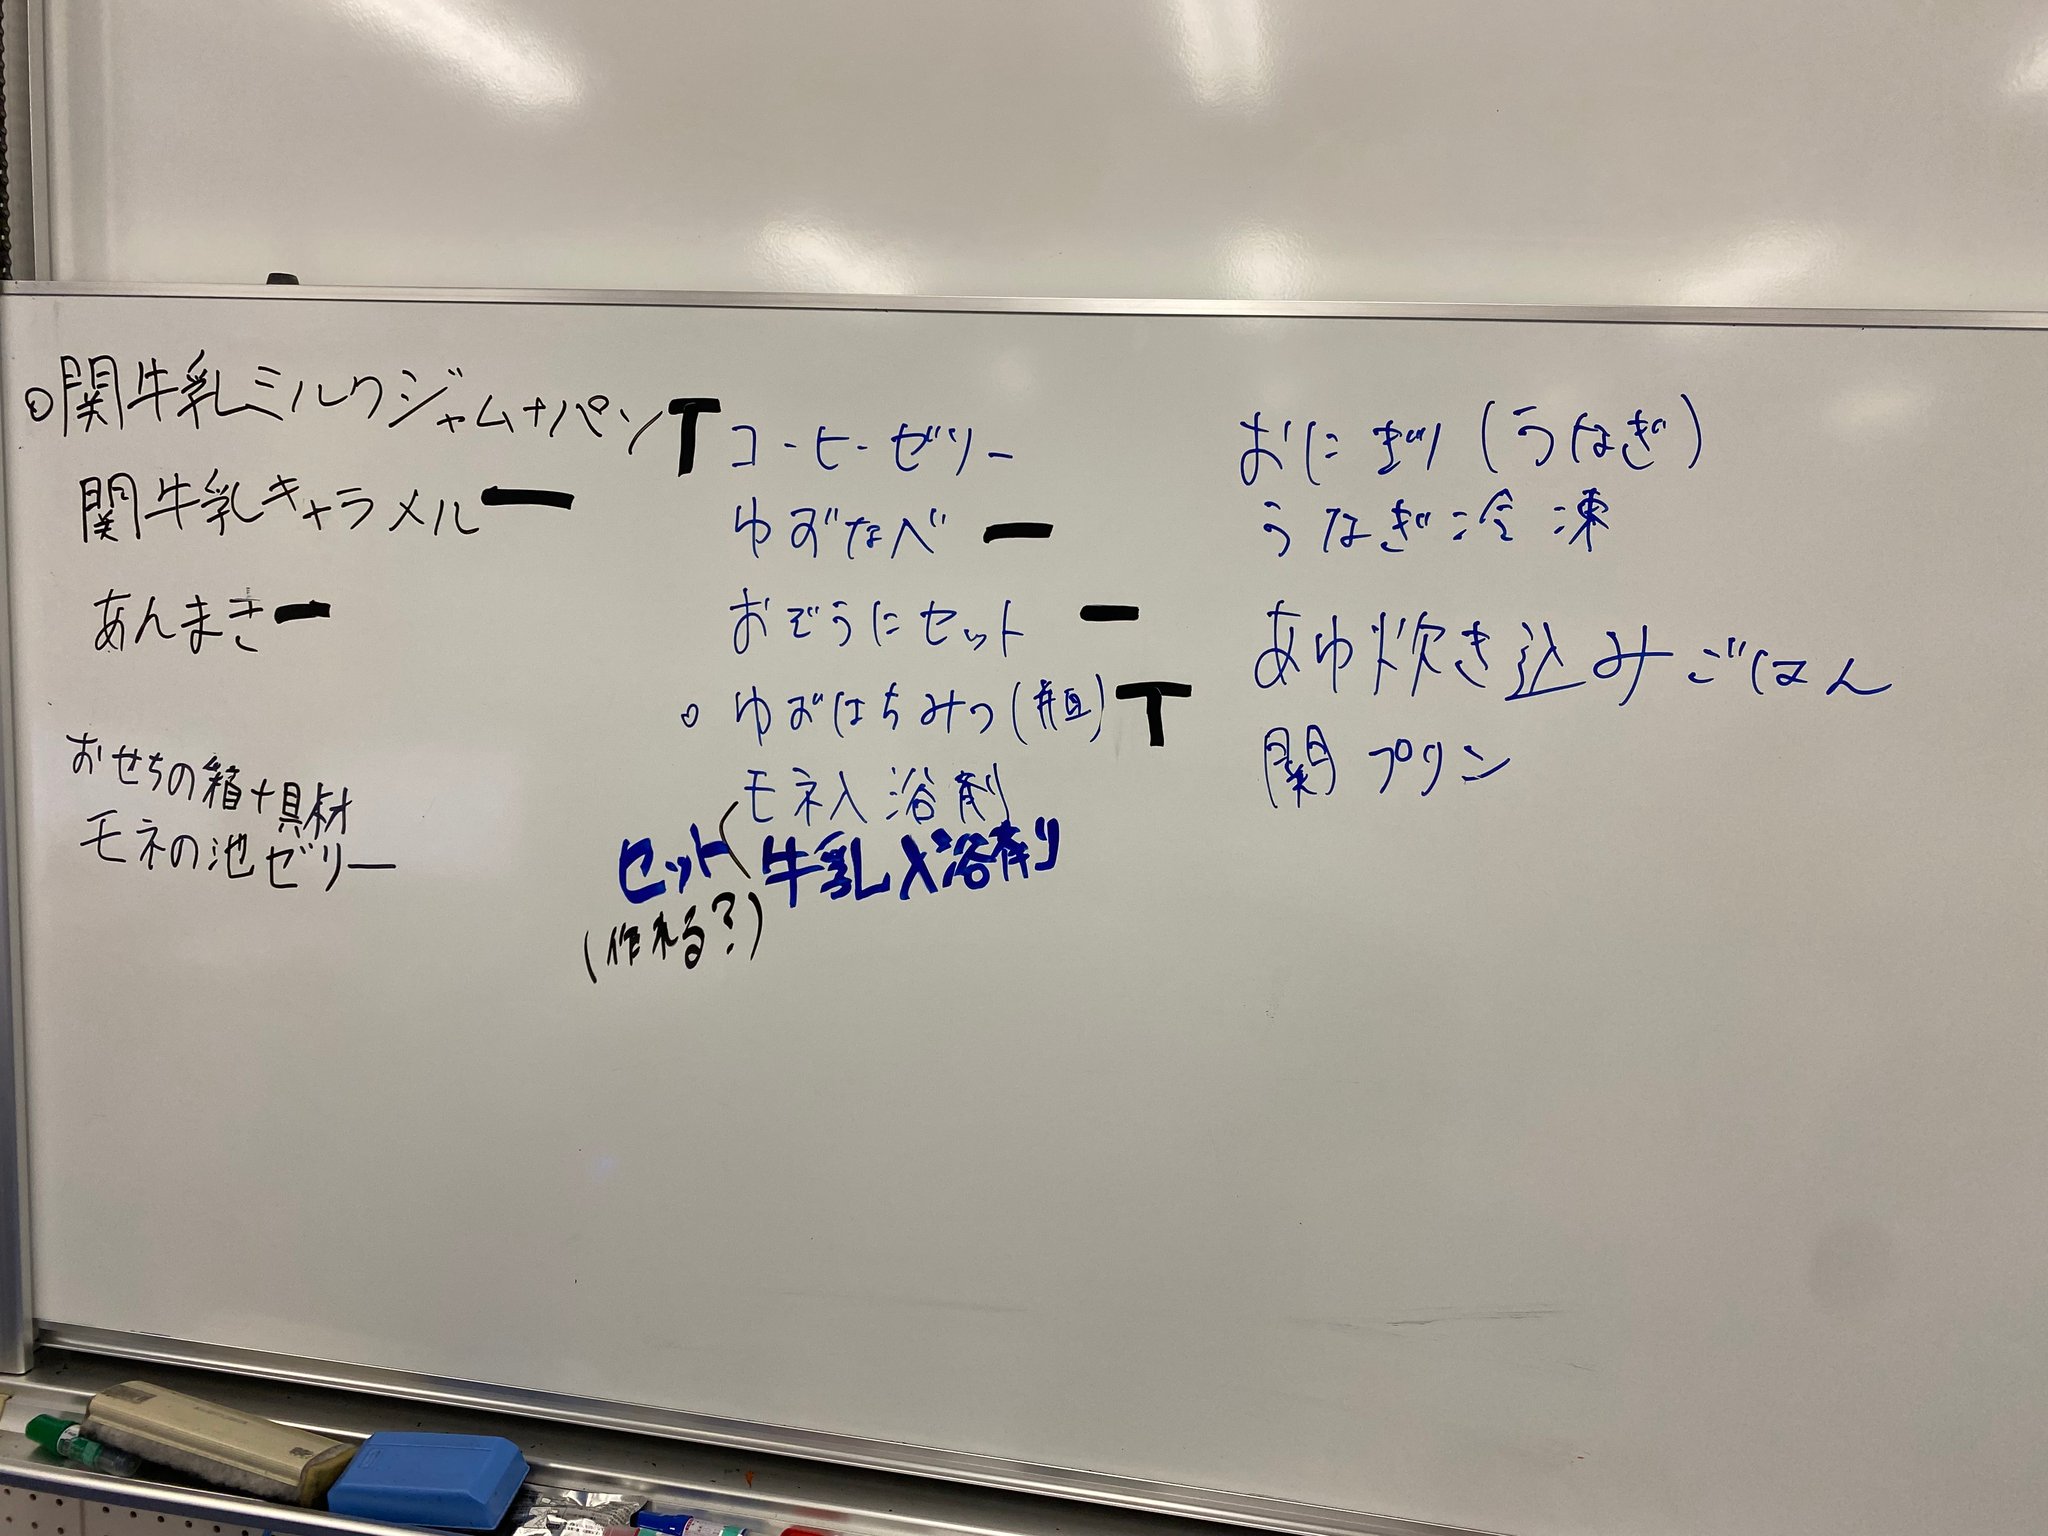 ○関牛乳ミルクジャム+パン T
関牛乳キャラメル ー
あんまき ー
おせちの箱+具材
モネの池ゼリー
コーヒーゼリー
ゆずなべ ー
おぞうにセット ー
○ ゆずはちみつ( ) T
モネ入浴剤
セット 牛乳入浴剤
(作れる?)
おにぎり(うなぎ)
うなぎ冷凍
あゆ炊き込みごはん
関プリン